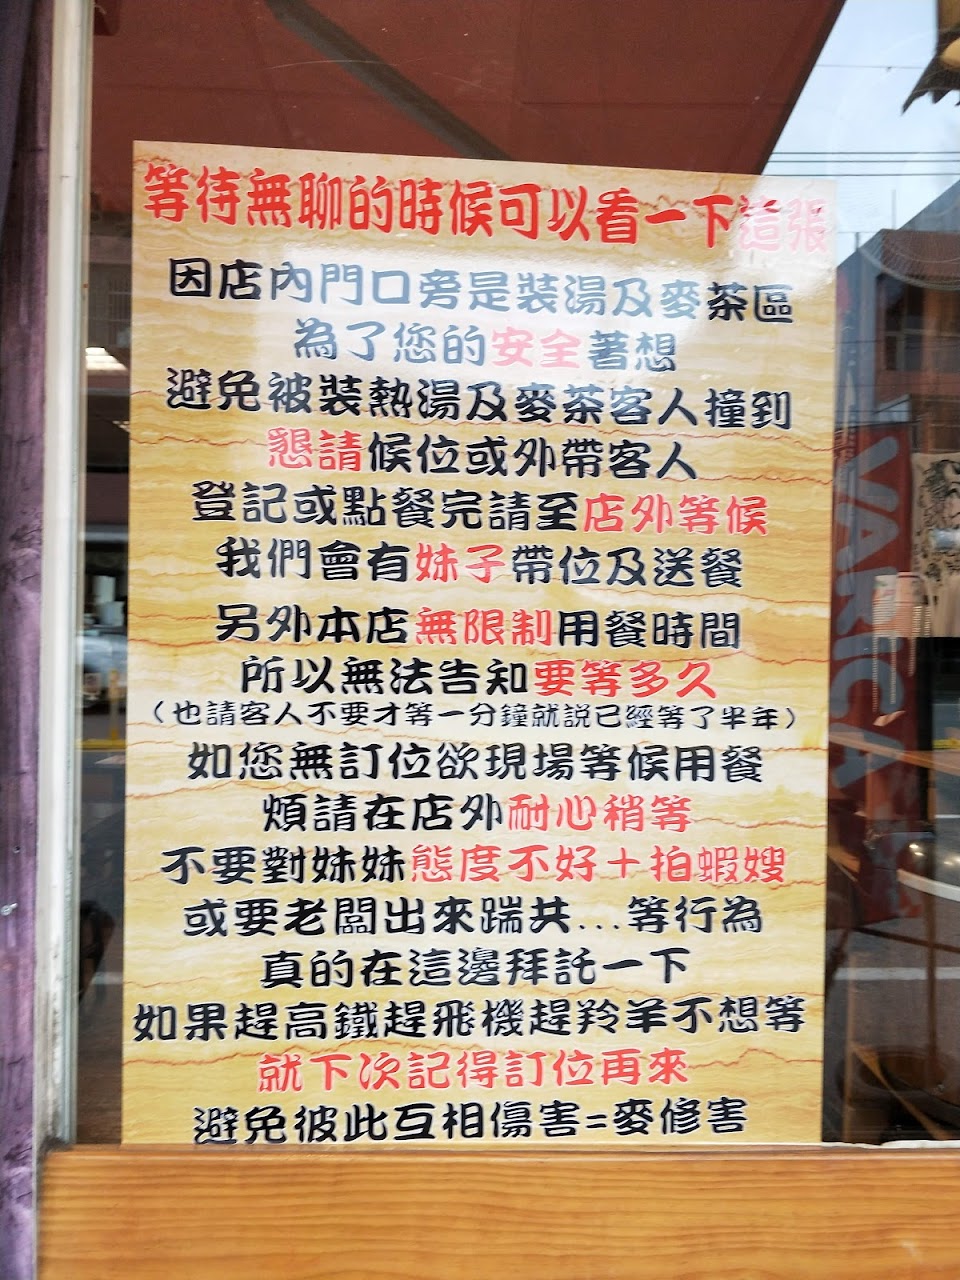 等待無聊的時候可以看一下這張
因店內門口旁是裝湯及麥茶區
為了您的安全著想
避免被裝熱湯及麥茶客人撞到
懇請候位或外帶客人
登記或點餐完請至店外等候
我們會有妹子帶位及送餐
另外本店無限制用餐時間
所以無法告知要等多久
（也請客人不要才等一分鐘就説已經等了半年）
如您無訂位欲現場等候用餐
煩請在店外耐心稍等
不要對妹妹態度不好＋拍蝦嫂
或要老闆出來踹共...等行為
真的在這邊拜託一下
如果趕高鐵趕飛機趕羚羊不想等
就下次記得訂位再來
避免彼此互相傷害=麥修害
VARICA